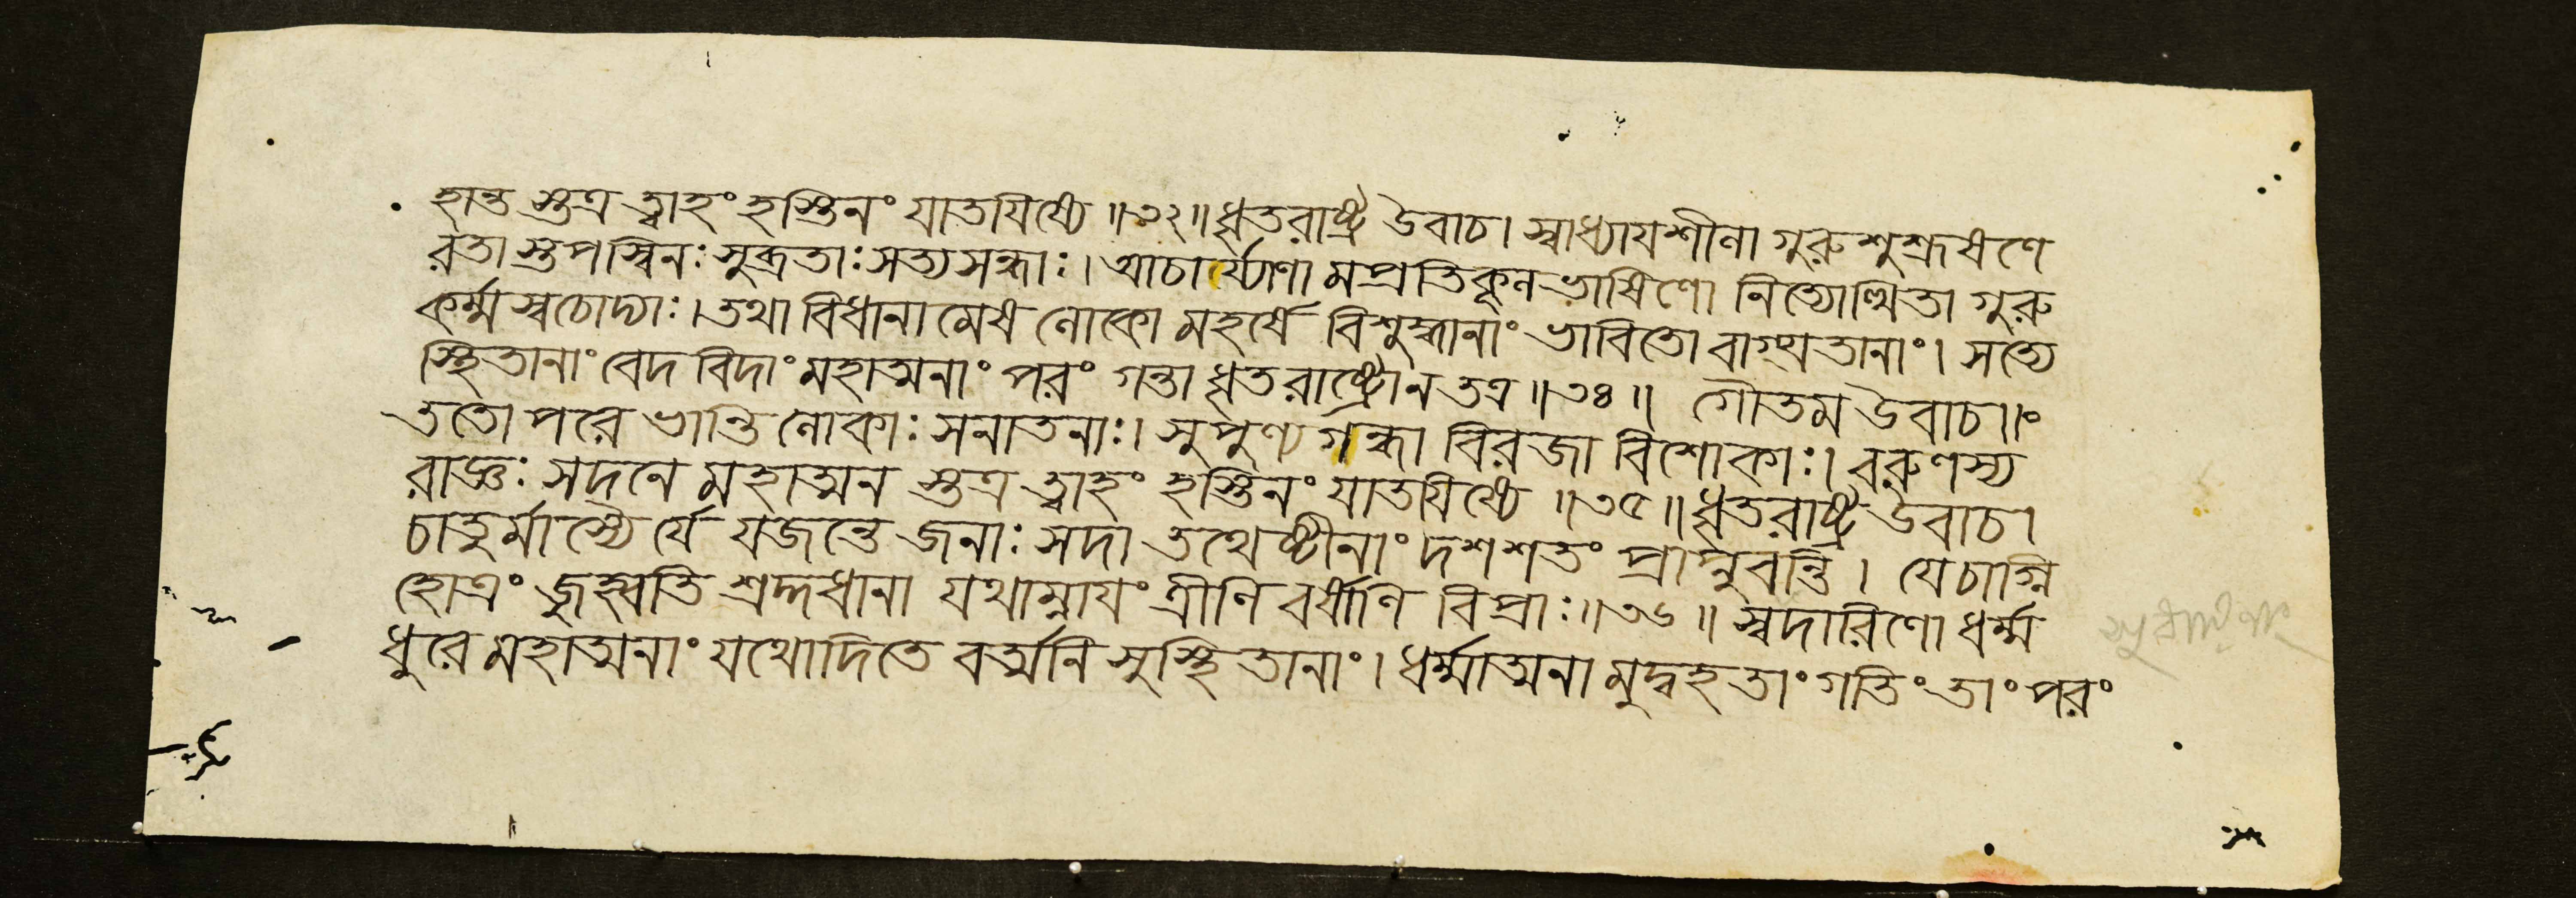 হান্ত স্তত্র ত্বাহং হস্তিনং যাতযিষ্যে ॥৩২॥ ধৃতরাষ্ট্র উবাচ। স্বাধ্যাযশীলা গুরুশুশ্রূষণে
রতা স্তপস্বিনঃ সুব্রতাঃ সত্যসন্ধাঃ। আচার্য্যাণা মপ্রতিকূলভাষিণো নিত্যোত্থিতা গুরু
কর্ম্মস্বচোদ্যাঃ। তথা বিধানা মেষ লোকো মহর্ষে বিশুদ্ধানাং ভাবিতো বাগ্যতানাং। সত্যে
স্থিতানাং বেদ বিদাং মহাত্মনাং পরং গন্তা ধৃতরাষ্ট্রো ন তত্র ॥৩৪॥ গৌতম উবাচ॥
ততো পরে ভান্তি লোকাঃ সনাতনাঃ। সুপুণ্য গন্ধা বিরজা বিশোকাঃ। বরুণস্য
রাজ্ঞঃ সদনে মহাত্মন স্তত্র ত্বাহং হস্তিনং যাতযিষ্যে ॥৩৫॥ ধৃতরাষ্ট্র উবাচ।
চাতুর্মাস্যৈ র্যে যজন্তে জনাঃ সদা তথেষ্টীনাং দশশতং প্রাপ্নুবন্তি। যে চাগ্নি
হোত্রং জুহ্বতি শ্রদ্দধানা যথাম্নাযং ত্রীণি বর্ষাণি বিপ্রাঃ॥৩৬॥ স্বদারিণো ধর্ম্ম
ধুরে মহাত্মনাং যথোদিতে বর্ত্মনি সুস্থিতানাং। ধর্ম্মাত্মনা মুদ্বহতাং গতিং তাং পরং